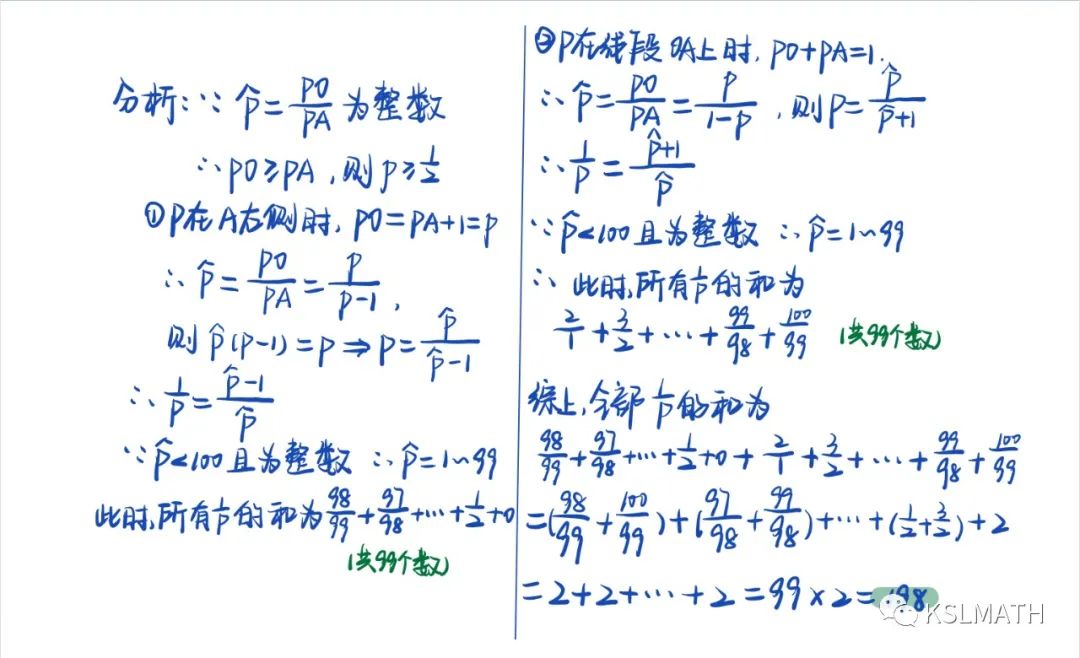 分析:∵ p̂=PO/PA 为整数
∴PO≥PA,则p≥1/2
①P在A右侧时,PO=PA+1=p
∴ p̂=PO/PA=p/(p-1),
则 p̂(p-1)=p⇒p=p̂/(p̂-1)
∴ 1/p=(p̂-1)/p̂
∵p̂<100且为整数 ∴p̂=1~99
此时,所有1/p的和为98/99+97/98+…+1/2+0
(共99个数)
②P在线段OA上时,PO+PA=1.
∴ p̂=PO/PA=p/(1-p),则p=p̂/(p̂+1)
∴ 1/p=(p̂+1)/p̂
∵p̂<100且为整数 ∴p̂=1~99
∴ 此时,所有1/p的和为
2/1+3/2+…+99/98+100/99 (共99个数)
综上,全部1/p的和为
98/99+97/98+…+1/2+0+2/1+3/2+…+99/98+100/99
=(98/99+100/99)+(97/98+99/98)+…+(1/2+3/2)+2
=2+2+…+2=99×2=198
KSLMATH